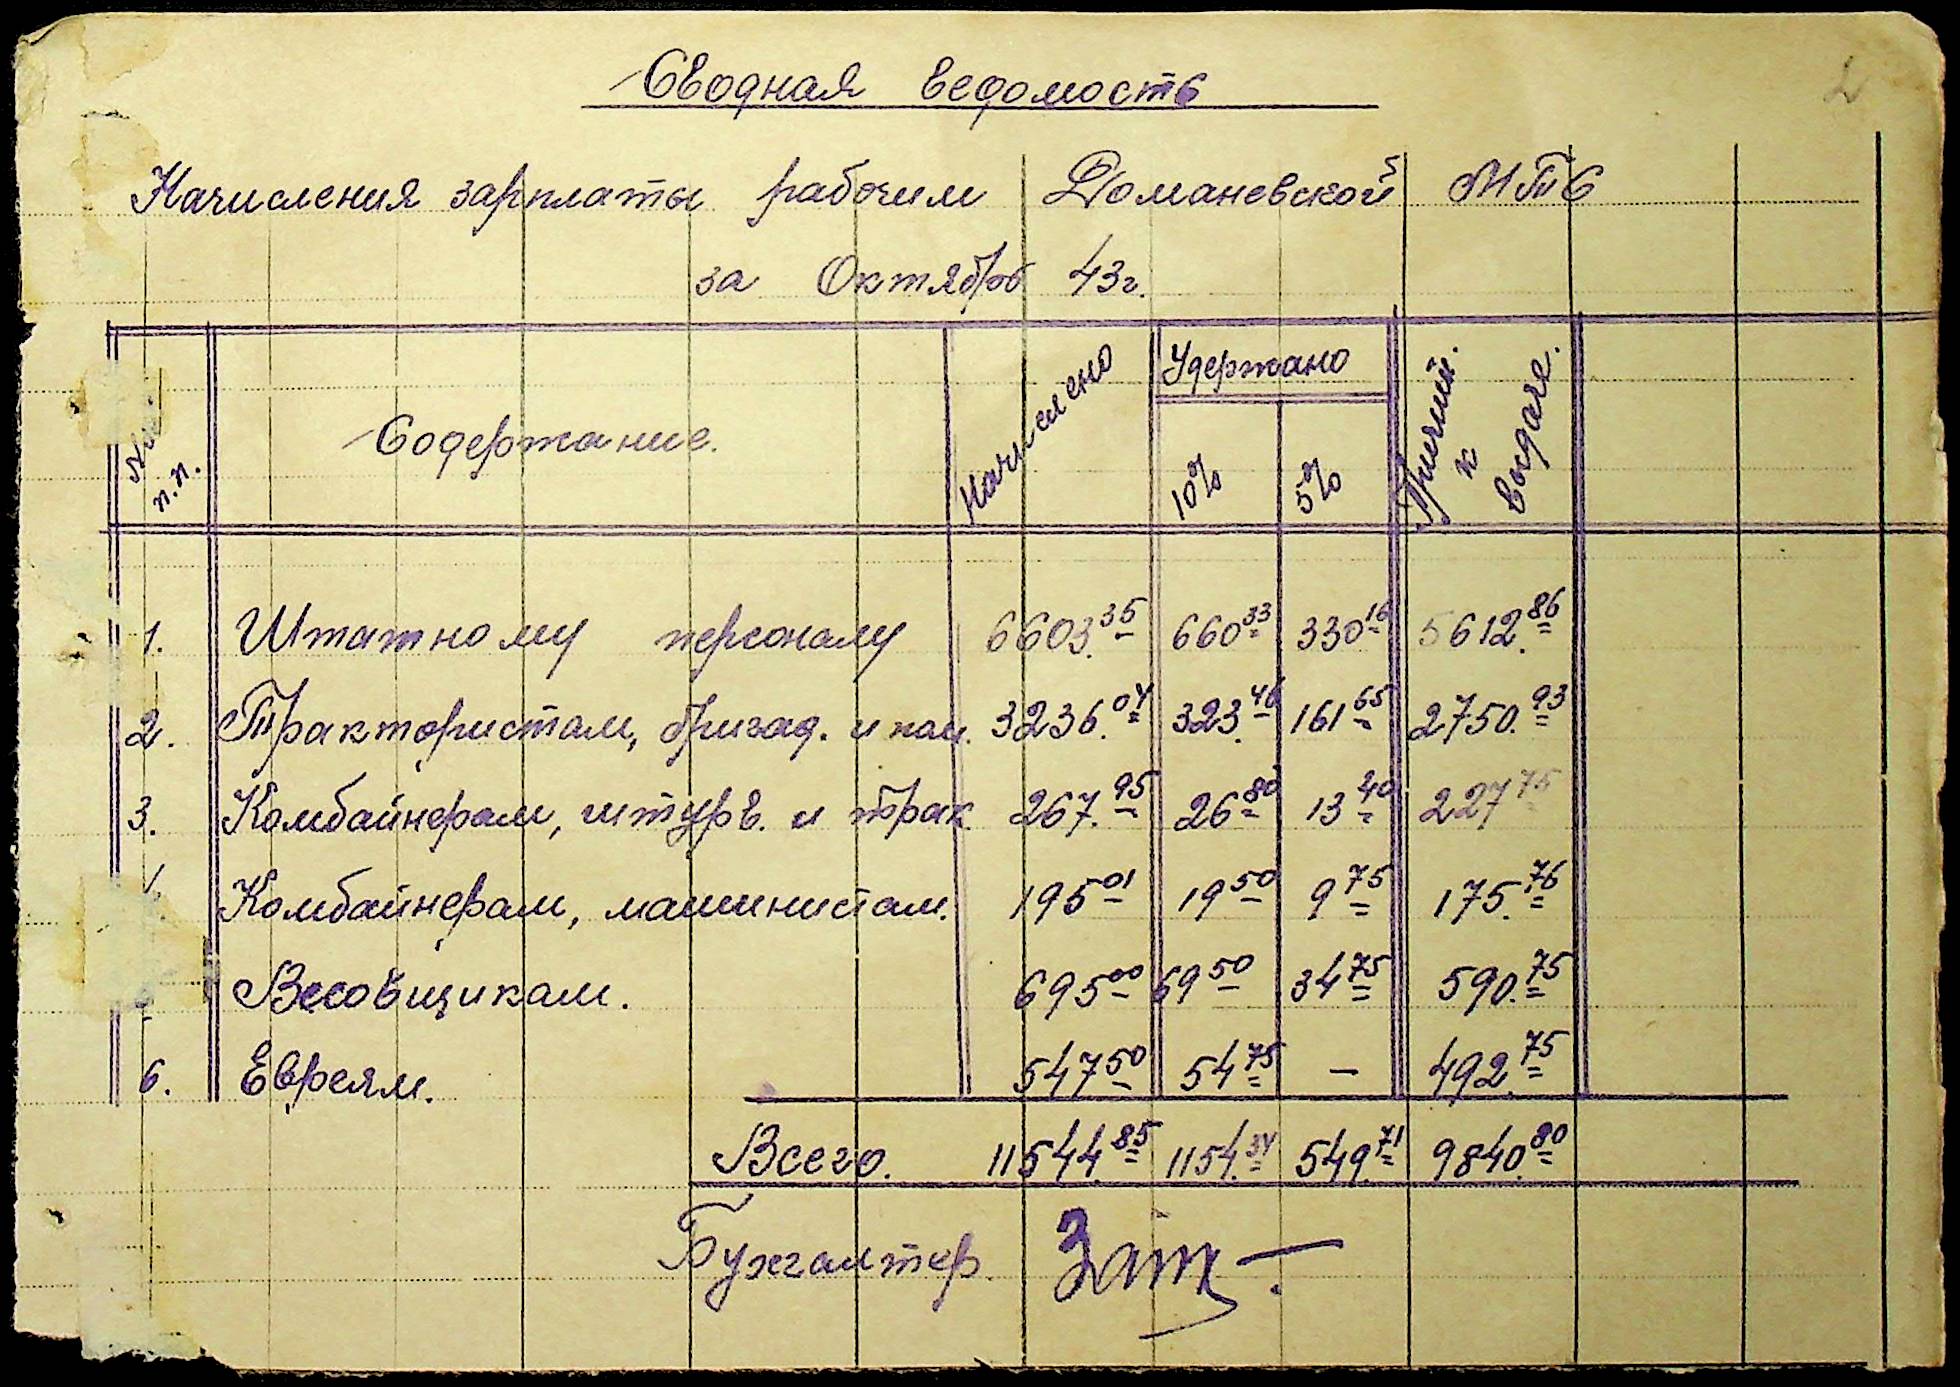 Сводная ведомость
Начисления зарплаты рабочим Доманевской МТС
за Октябрь 43г.
№№ п.п. Содержание. Начислено Удержано 10% 5% Причит. к выдаче.
1. Штатному персоналу 6603.35 660 33 330 16 5612.86
2. Трактористам, бригад. и 3236.04 323.46 161 65 2750.93
3. Комбайнерам, штурв. и трак. 267.95 26 80 13 40 227 75
Комбайнерам, машинистам. 195 01 19 50 9 75 175.76
Весовщикам. 695 00 69 50 34 75 590.75
6. Евреям. 547 50 54 75 – 492.75
Всего. 11544.85 1154.34 549.71 9840.80
Бухгалтер